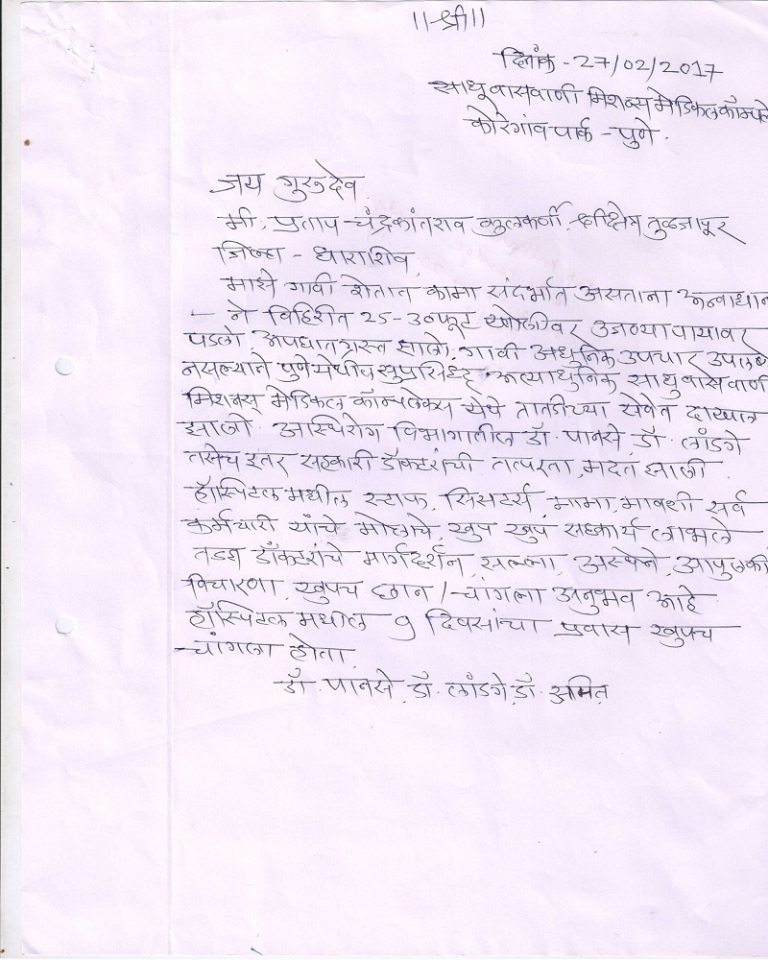 ॥श्री॥
दिनांक - 27/02/2017
साधू वासवाणी मिशन्स मेडिकल कॉम्प्ले
कोरेगांव पार्क - पुणे.
जय गुरुदेव
मी. प्रताप चंद्रकांतराव कुलकर्णी. श्रीक्षेत्र तुळजापूर
जिल्हा - धाराशिव
माझे गावी शेतात कामा संदर्भात असताना अनवधान
- ने विहिरीत 25-30 फूट खोलीवर उजव्या पायावर
पडलो. अपघातग्रस्त झालो. गावी अधुनिक उपचार उपलब्ध
नसल्याने पुणे येथील सुप्रसिध्द अत्याधुनिक साधु वासवाणी
मिशनस् मेडिकल कॉम्पलेक्स येथे तातडीच्या सेवेत दाखल
झालो. अस्थिरोग विभागातील डॉ. पानसे, डॉ. लांडगे
तसेच इतर सहकारी डॉक्टरांची तत्परता, मदत झाली.
हॉस्पिटल मधील स्टाफ, सिसटर्स, मामा, मावशी सर्व
कर्मचारी यांचे मोलाचे, खुप खुप सहकार्य लाभले
तज्ञ डॉक्टरांचे मार्गदर्शन, सल्ला, आस्थेने, आपुलकी
विचारणा, खुपच छान / चांगला अनुभव आहे.
हॉस्पिटल मधील 9 दिवसांचा प्रवास खुपच
चांगला होता.
डॉ. पानसे, डॉ. लांडगे, डॉ. अमित